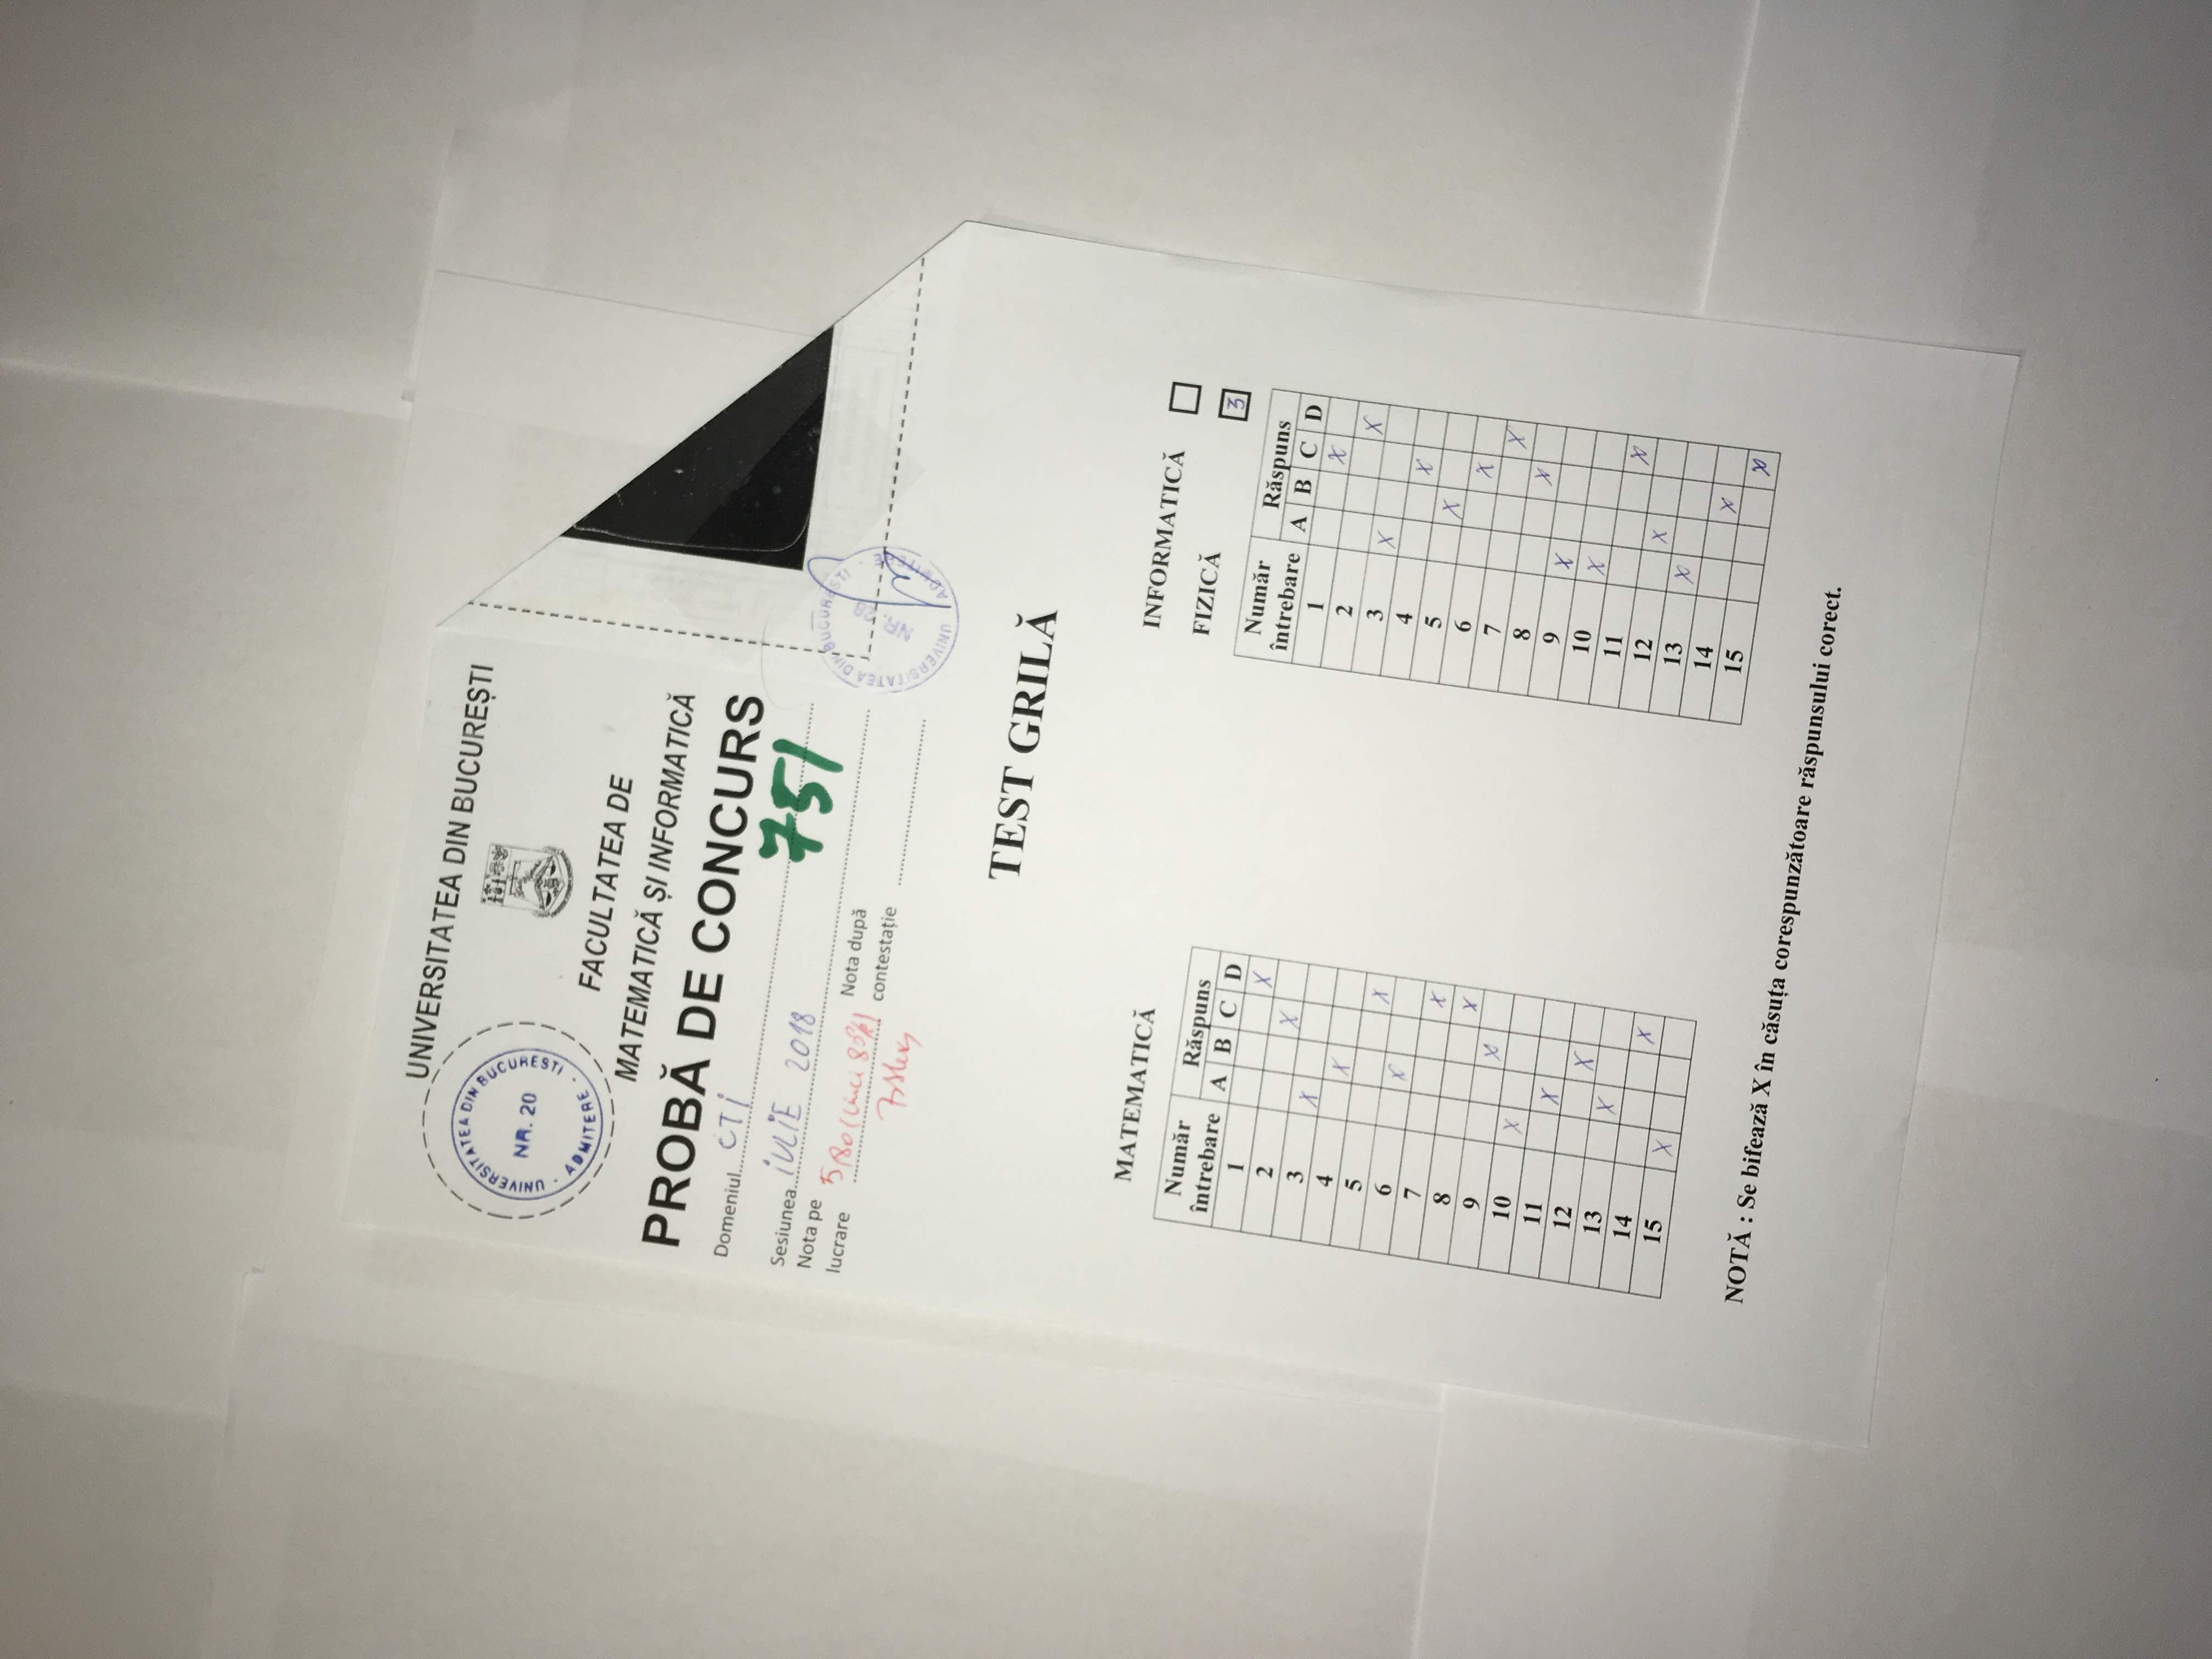 UNIVERSITATEA DIN BUCUREȘTI
UNIVERSITATEA DIN BUCUREȘTI
NR. 20
ADMITERE
FACULTATEA DE
MATEMATICĂ ȘI INFORMATICĂ
PROBĂ DE CONCURS
Domeniul CTI
751
Sesiunea IULIE 2018
Nota pe lucrare 5,80 (cinci 80%)
Nota după contestație
UNIVERSITATEA DIN BUCURESTI
NR. 28
ADMITERE
TEST GRILĂ
MATEMATICĂ
Număr întrebare Răspuns
A B C D
1 X
2 X
3 X
4 X
5 X
6 X
7 X
8 X
9 X
10 X
11 X
12 X
13 X
14 X
15 X
INFORMATICĂ
FIZICĂ 3
Număr întrebare Răspuns
A B C D
1 X
2 X
3 X
4 X
5 X
6 X
7 X
8 X
9 X
10 X
11 X
12 X
13 X
14 X
15 X
NOTĂ : Se bifează X în căsuța corespunzătoare răspunsului corect.